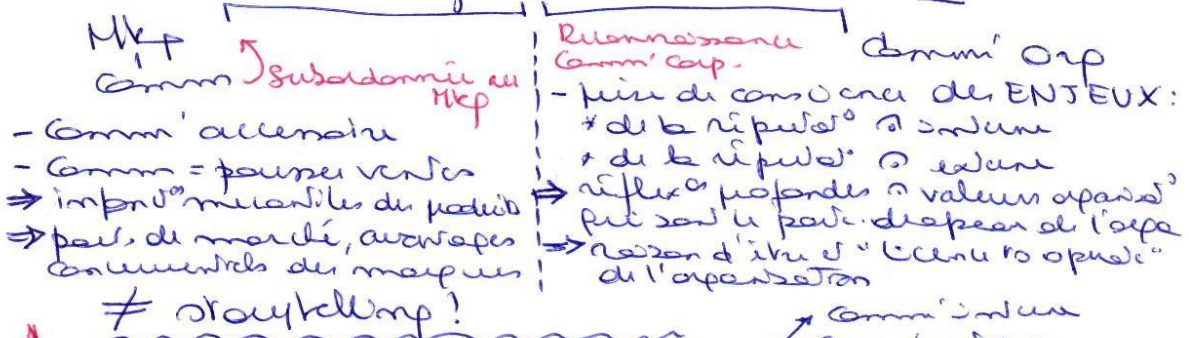 Mkg
Comm
subordonnée au
Mkg
- Comm' accessoire
- Comm = pousser ventes
⇒ informat° mercantiles du produit
⇒ parts de marché, avantages
concurrentiels des marques
≠ storytelling !
Reconnaissance
Comm' corp.
Comm' Org
- prise de conscience des ENJEUX :
* de la réputat° interne
* de la réputat° externe
⇒ réflex° profondes valeurs organisat°
qui sont le porte-drapeau de l'orga
⇒ raison d'être et "licence to operate"
de l'organisation
comm' interne